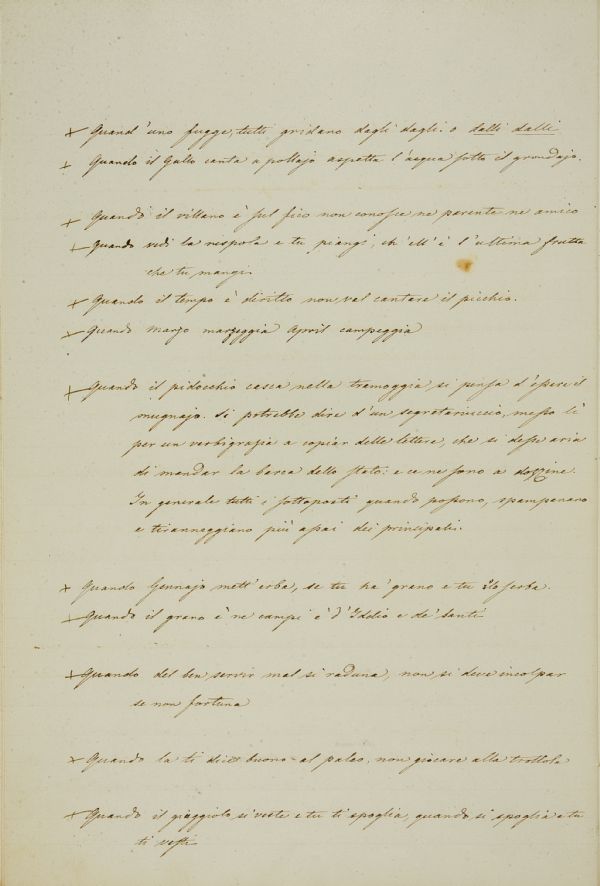 + Quand'uno fugge, tutti gridano dagli dagli: o dalli dalli
+ Quando il Gallo canta a pollajo aspetta l'acqua sotto il grondajo.
+ Quando il villano è sul fico non conosce ne parente ne amico
+ Quando vedi la nespola e tu piangi, ch'ell'è l'ultima frutta
che tu mangi.
+ Quando il tempo è diritto non val cantare il picchio.
+ Quando marzo marzeggia April campeggia
+ Quando il pidocchio casca nella tramoggia, si pensa d'essere il
mugnajo. Si potrebbe dire d'un segretariuccio, messo lì
per un verbigrazia a copiar delle lettere, che si desse aria
di mandar la barca dello stato: e ce ne sono a dozzine.
In generale tutti i sottoposti quando possono, spampanano
e tiranneggiano più assai dei principali.
+ Quando Gennajo mett'erba, se tu ha' grano e tu lo serba.
+ Quando il grano è ne campi è d'Iddio e de' Santi
+ Quando del ben servir mal si raduna, non si deve incolpar
se non fortuna
+ Quando la ti dice buono al paleo, non giocare alla trottola
+ Quando il giaggiolo si veste e tu ti spoglia, quando si spoglia e tu
ti vesti